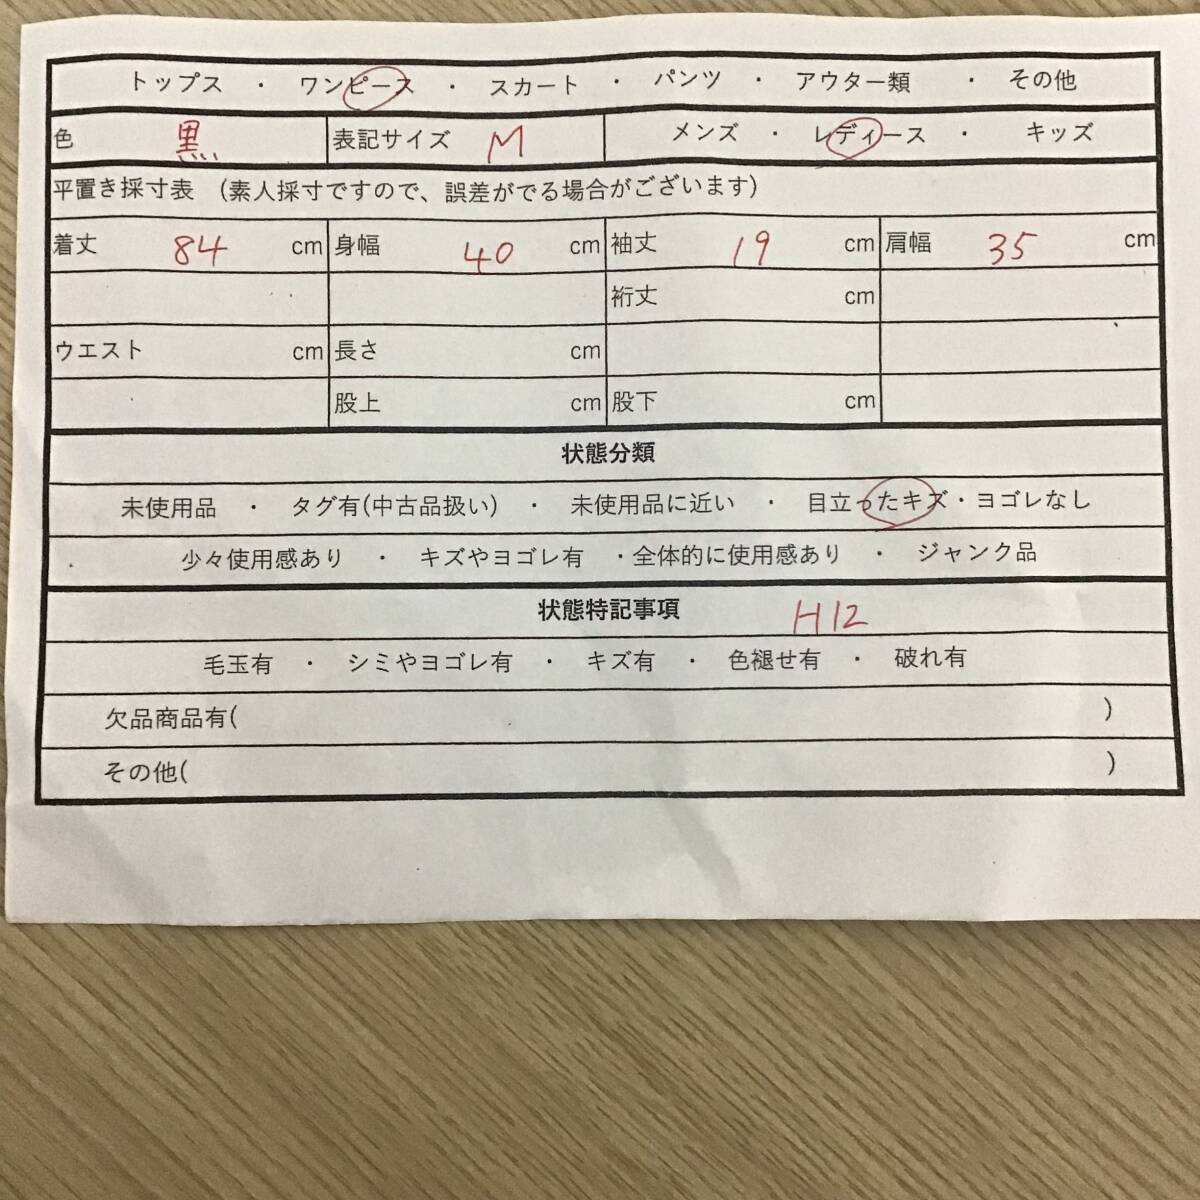 トップス ・ ワンピース ・ スカート ・ パンツ ・ アウター類 ・ その他
色 黒 表記サイズ M メンズ ・ レディース ・ キッズ
平置き採寸表 (素人採寸ですので、誤差がでる場合がございます)
着丈 84 cm 身幅 40 cm 袖丈 19 cm 肩幅 35 cm
裄丈 cm
ウエスト cm 長さ cm
股上 cm 股下 cm
状態分類
未使用品 ・ タグ有(中古品扱い) ・ 未使用品に近い ・ 目立ったキズ・ヨゴレなし
少々使用感あり ・ キズやヨゴレ有 ・全体的に使用感あり ・ ジャンク品
状態特記事項 H12
毛玉有 ・ シミやヨゴレ有 ・ キズ有 ・ 色褪せ有 ・ 破れ有
欠品商品有( )
その他( )